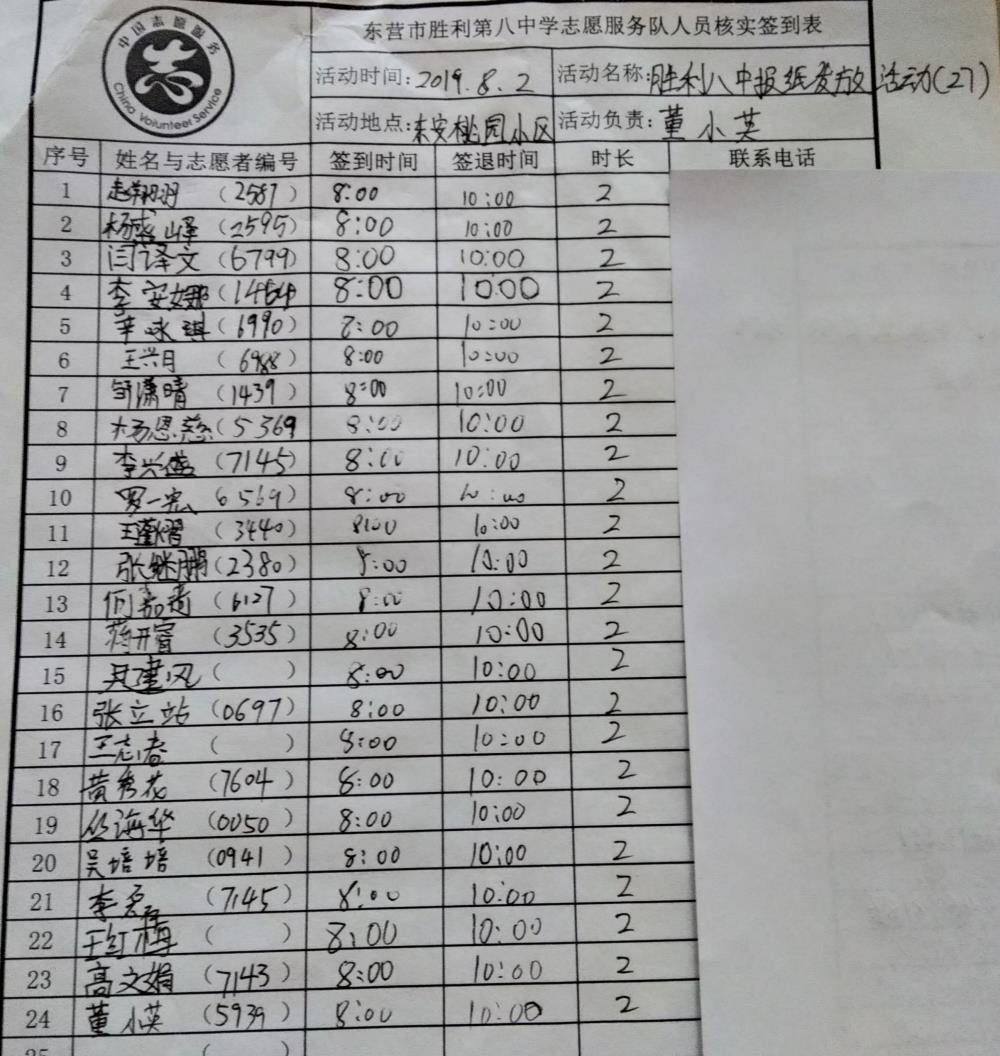 中国志愿服务
China Volunteer Service
东营市胜利第八中学志愿服务队人员核实签到表
活动时间:2019.8.2 活动名称:胜利八中报纸发放活动(27)
活动地点:东安桃园小区 活动负责:董小英
序号 姓名与志愿者编号 签到时间 签退时间 时长 联系电话
1 赵翔羽 (2587) 8:00 10:00 2
2 杨盛峄 (2595) 8:00 10:00 2
3 闫译文 (6799) 8:00 10:00 2
4 李安娜 8:00 10:00 2
5 辛咏琪 (6990) 8:00 10:00 2
6 王兴月 (6988) 8:00 10:00 2
7 邹潇晴 (1439) 8:00 10:00 2
8 杨恩慈(5369 8:00 10:00 2
9 李兴 (7145) 8:00 10:00 2
10 罗一宏 (6569) 8:00 10:00 2
11 王 (3440) 8:00 10:00 2
12 张继鹏(2380) 8:00 10:00 2
13 何嘉 (6127) 8:00 10:00 2
14 蒋开睿 (3535) 8:00 10:00 2
15 尹建风 ( ) 8:00 10:00 2
16 张立站 (0697) 8:00 10:00 2
17 王志春 ( ) 8:00 10:00 2
18 黄秀花 (7604) 8:00 10:00 2
19 丛海华 (0050) 8:00 10:00 2
20 吴培培 (0941) 8:00 10:00 2
21 李磊 (7145) 8:00 10:00 2
22 王红梅 ( ) 8:00 10:00 2
23 高文娟 (7143) 8:00 10:00 2
24 董小英 (5939) 8:00 10:00 2
25 ( )